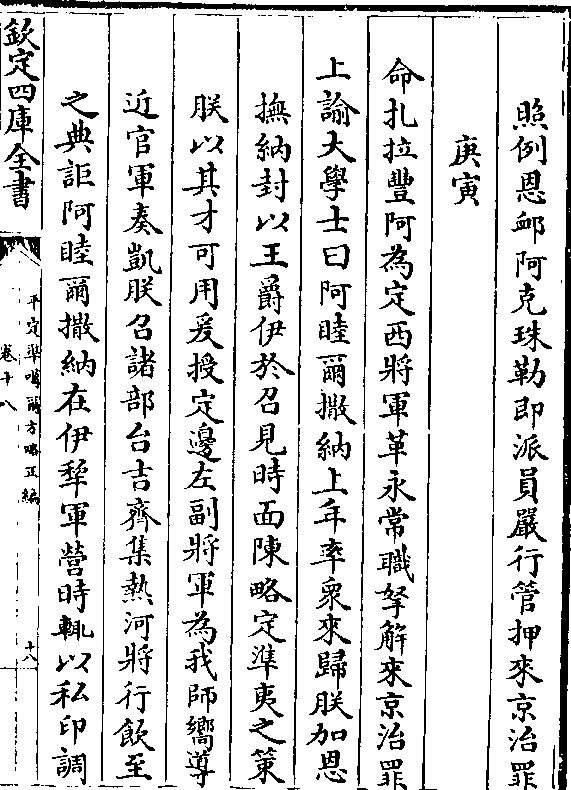 照例恩䘏阿克珠勒即派員嚴行管押來京治罪
庚寅
命扎拉豐阿為定西將軍革永常職拏解來京治罪
上諭大學士曰阿睦爾撒納上年率衆來歸朕加恩
撫納封以王爵伊於召見時面陳略定準夷之策
朕以其才可用爰授定邊左副將軍為我師嚮導
近官軍奏凱朕召諸部台吉齊集熱河將行飲至
之典詎阿睦爾撒納在伊犂軍營時輒以私印調
欽定四庫全書
平定準噶爾方略正編
卷十八
十八